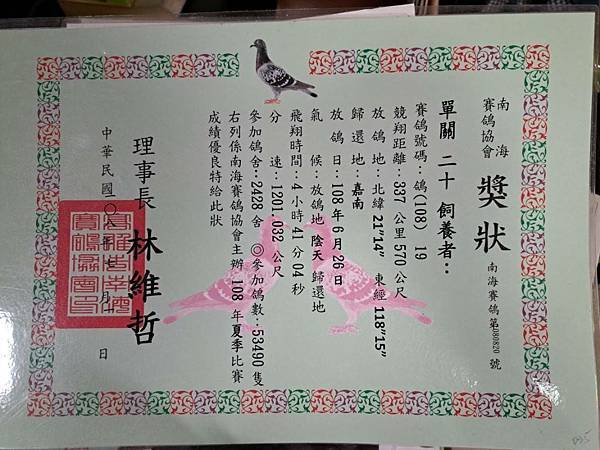 南海
賽鴿協會
獎狀
南海賽鴿第080820號
單關 二十 飼養者：
賽鴿號碼：鴿(108) 19
競翔距離：337 公里 570 公尺
放鴿地：北緯 21"14" 東經 118"15"
歸還地：嘉南
放鴿日：108 年 6 月 26 日
氣候：放鴿地 陰天 歸還地
飛翔時間：4 小時 41 分 04 秒
分速：1201.032 公尺
參加鴿舍：2428 舍 ◎參加鴿數：53490 隻
右列係南海賽鴿協會主辦 108 年夏季比賽
成績優良特給此狀
理事長 林維哲
中華民國一○ 年 月 日